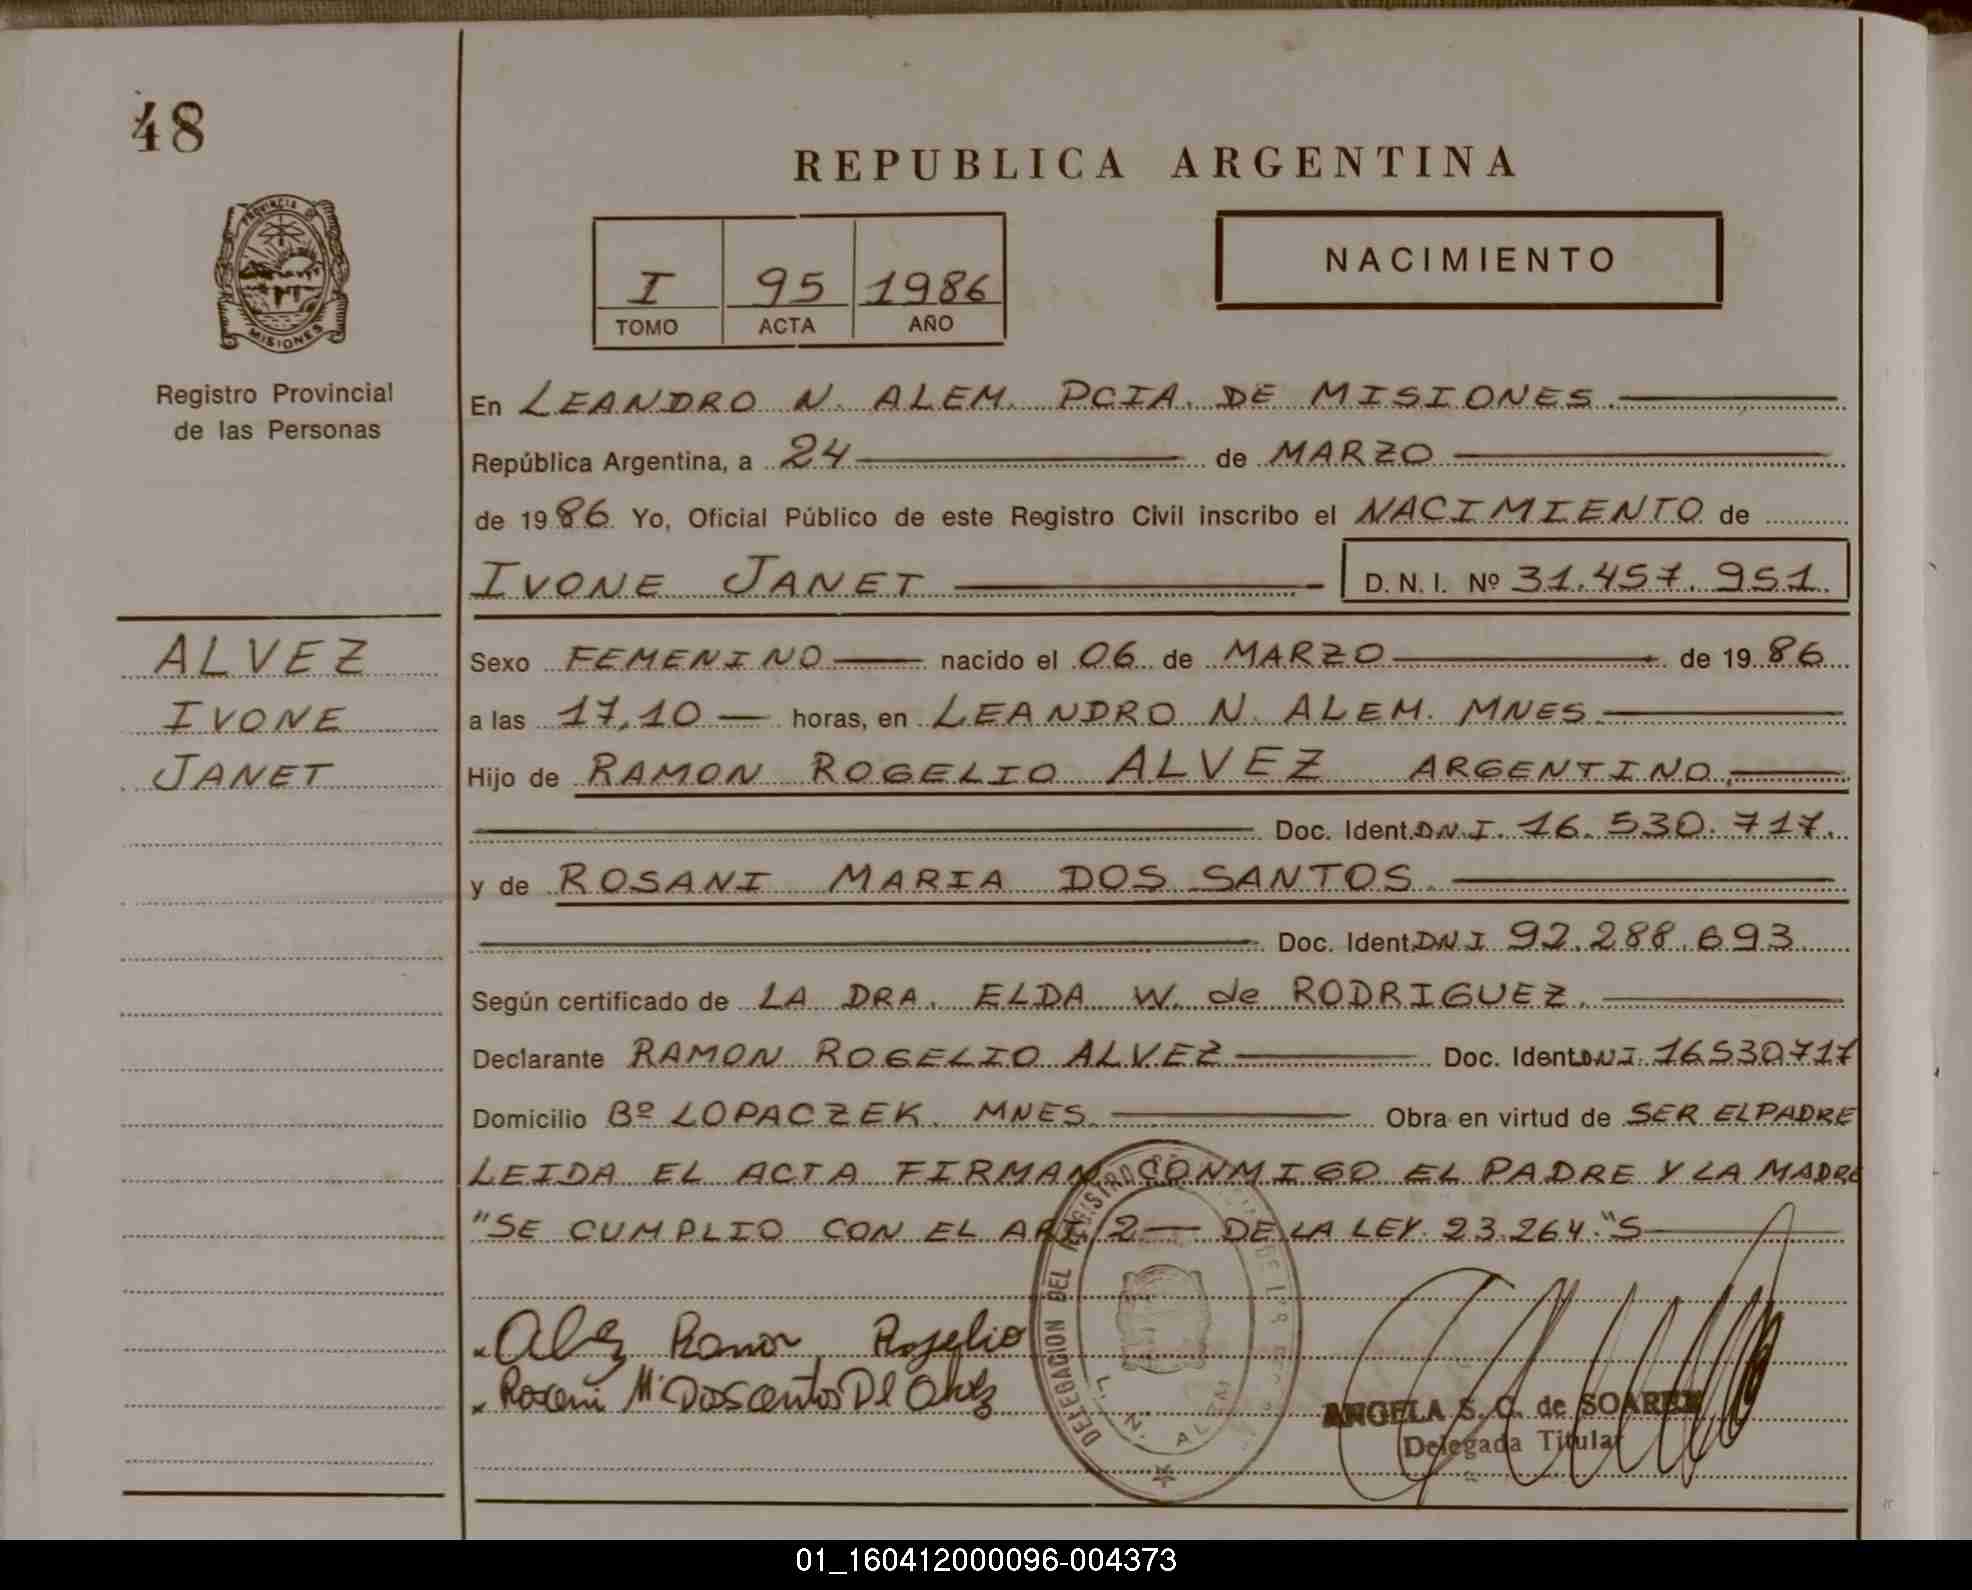 48
REPUBLICA ARGENTINA
PROVINCIA DE
MISIONES
I 95 1986
TOMO ACTA AÑO
NACIMIENTO
Registro Provincial
de las Personas
En LEANDRO N. ALEM. PCIA. DE MISIONES.
República Argentina, a 24 de MARZO
de 1986. Yo, Oficial Público de este Registro Civil inscribo el NACIMIENTO de
IVONE JANET D. N. I. Nº 31.457.951.
ALVEZ
IVONE
JANET
Sexo FEMENINO nacido el 06 de MARZO de 1986
a las 17,10 horas, en LEANDRO N. ALEM. MNES.
Hijo de RAMON ROGELIO ALVEZ ARGENTINO,
Doc. Ident. D.N.I. 16.530.717.
y de ROSANI MARIA DOS SANTOS.
Doc. Ident. DNI 92.288.693
Según certificado de LA DRA. ELDA W. de RODRIGUEZ.
Declarante RAMON ROGELIO ALVEZ Doc. Ident. DNI. 16530717
Domicilio Bº LOPACZEK. MNES. Obra en virtud de SER EL PADRE
LEIDA EL ACTA FIRMAN CONMIGO EL PADRE Y LA MADRE
"SE CUMPLIO CON EL ART. 2 DE LA LEY. 23.264."S
x Alvez Ramon Rogelio
x Rosani Mª Dos Santos De Alvez
DELEGACION DEL REGISTRO DE LAS
L. N. ALEM
ANGELA S. C. de SOAREZ
Delegada Titular
01_160412000096-004373